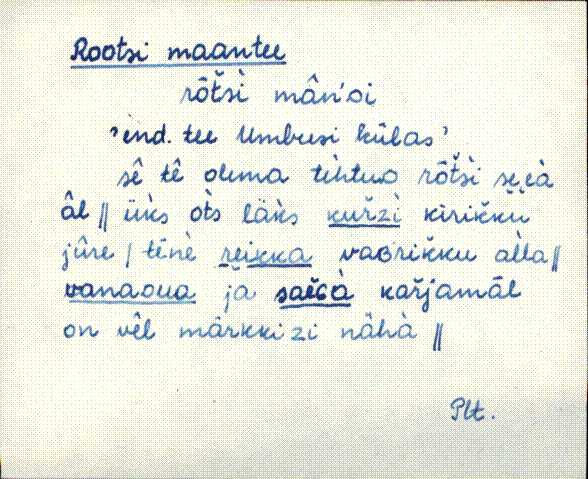 Rootsi maantee
rôt̆sì mân'oi
'ènd. tee Umbusi külas'
sê tê olema tehtuᴅ rôt̆sì seᴄà
âl || üks ots läks kuřzì kirikku
jûre | tẽnè reikka vaʙrikku alla ||
vanaoua ja saěᴄà kařjamāl
on vêl mârkkizi nâhà ||
Plt.